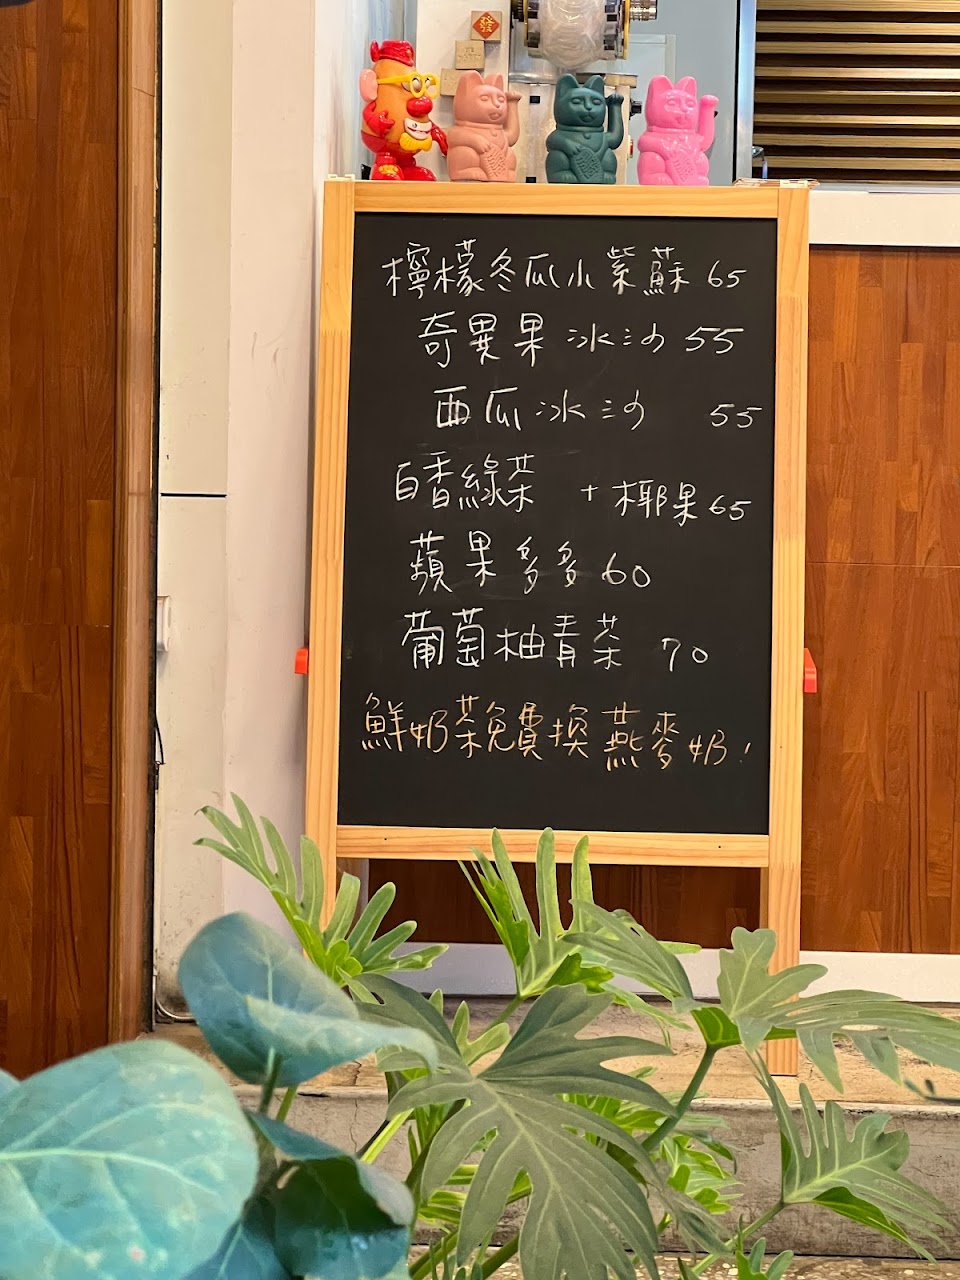 發
檸檬冬瓜小紫蘇 65
奇異果冰沙 55
西瓜冰沙 55
百香綠茶 +椰果 65
蘋果多多 60
葡萄柚青茶 70
鮮奶茶免費換燕麥奶!